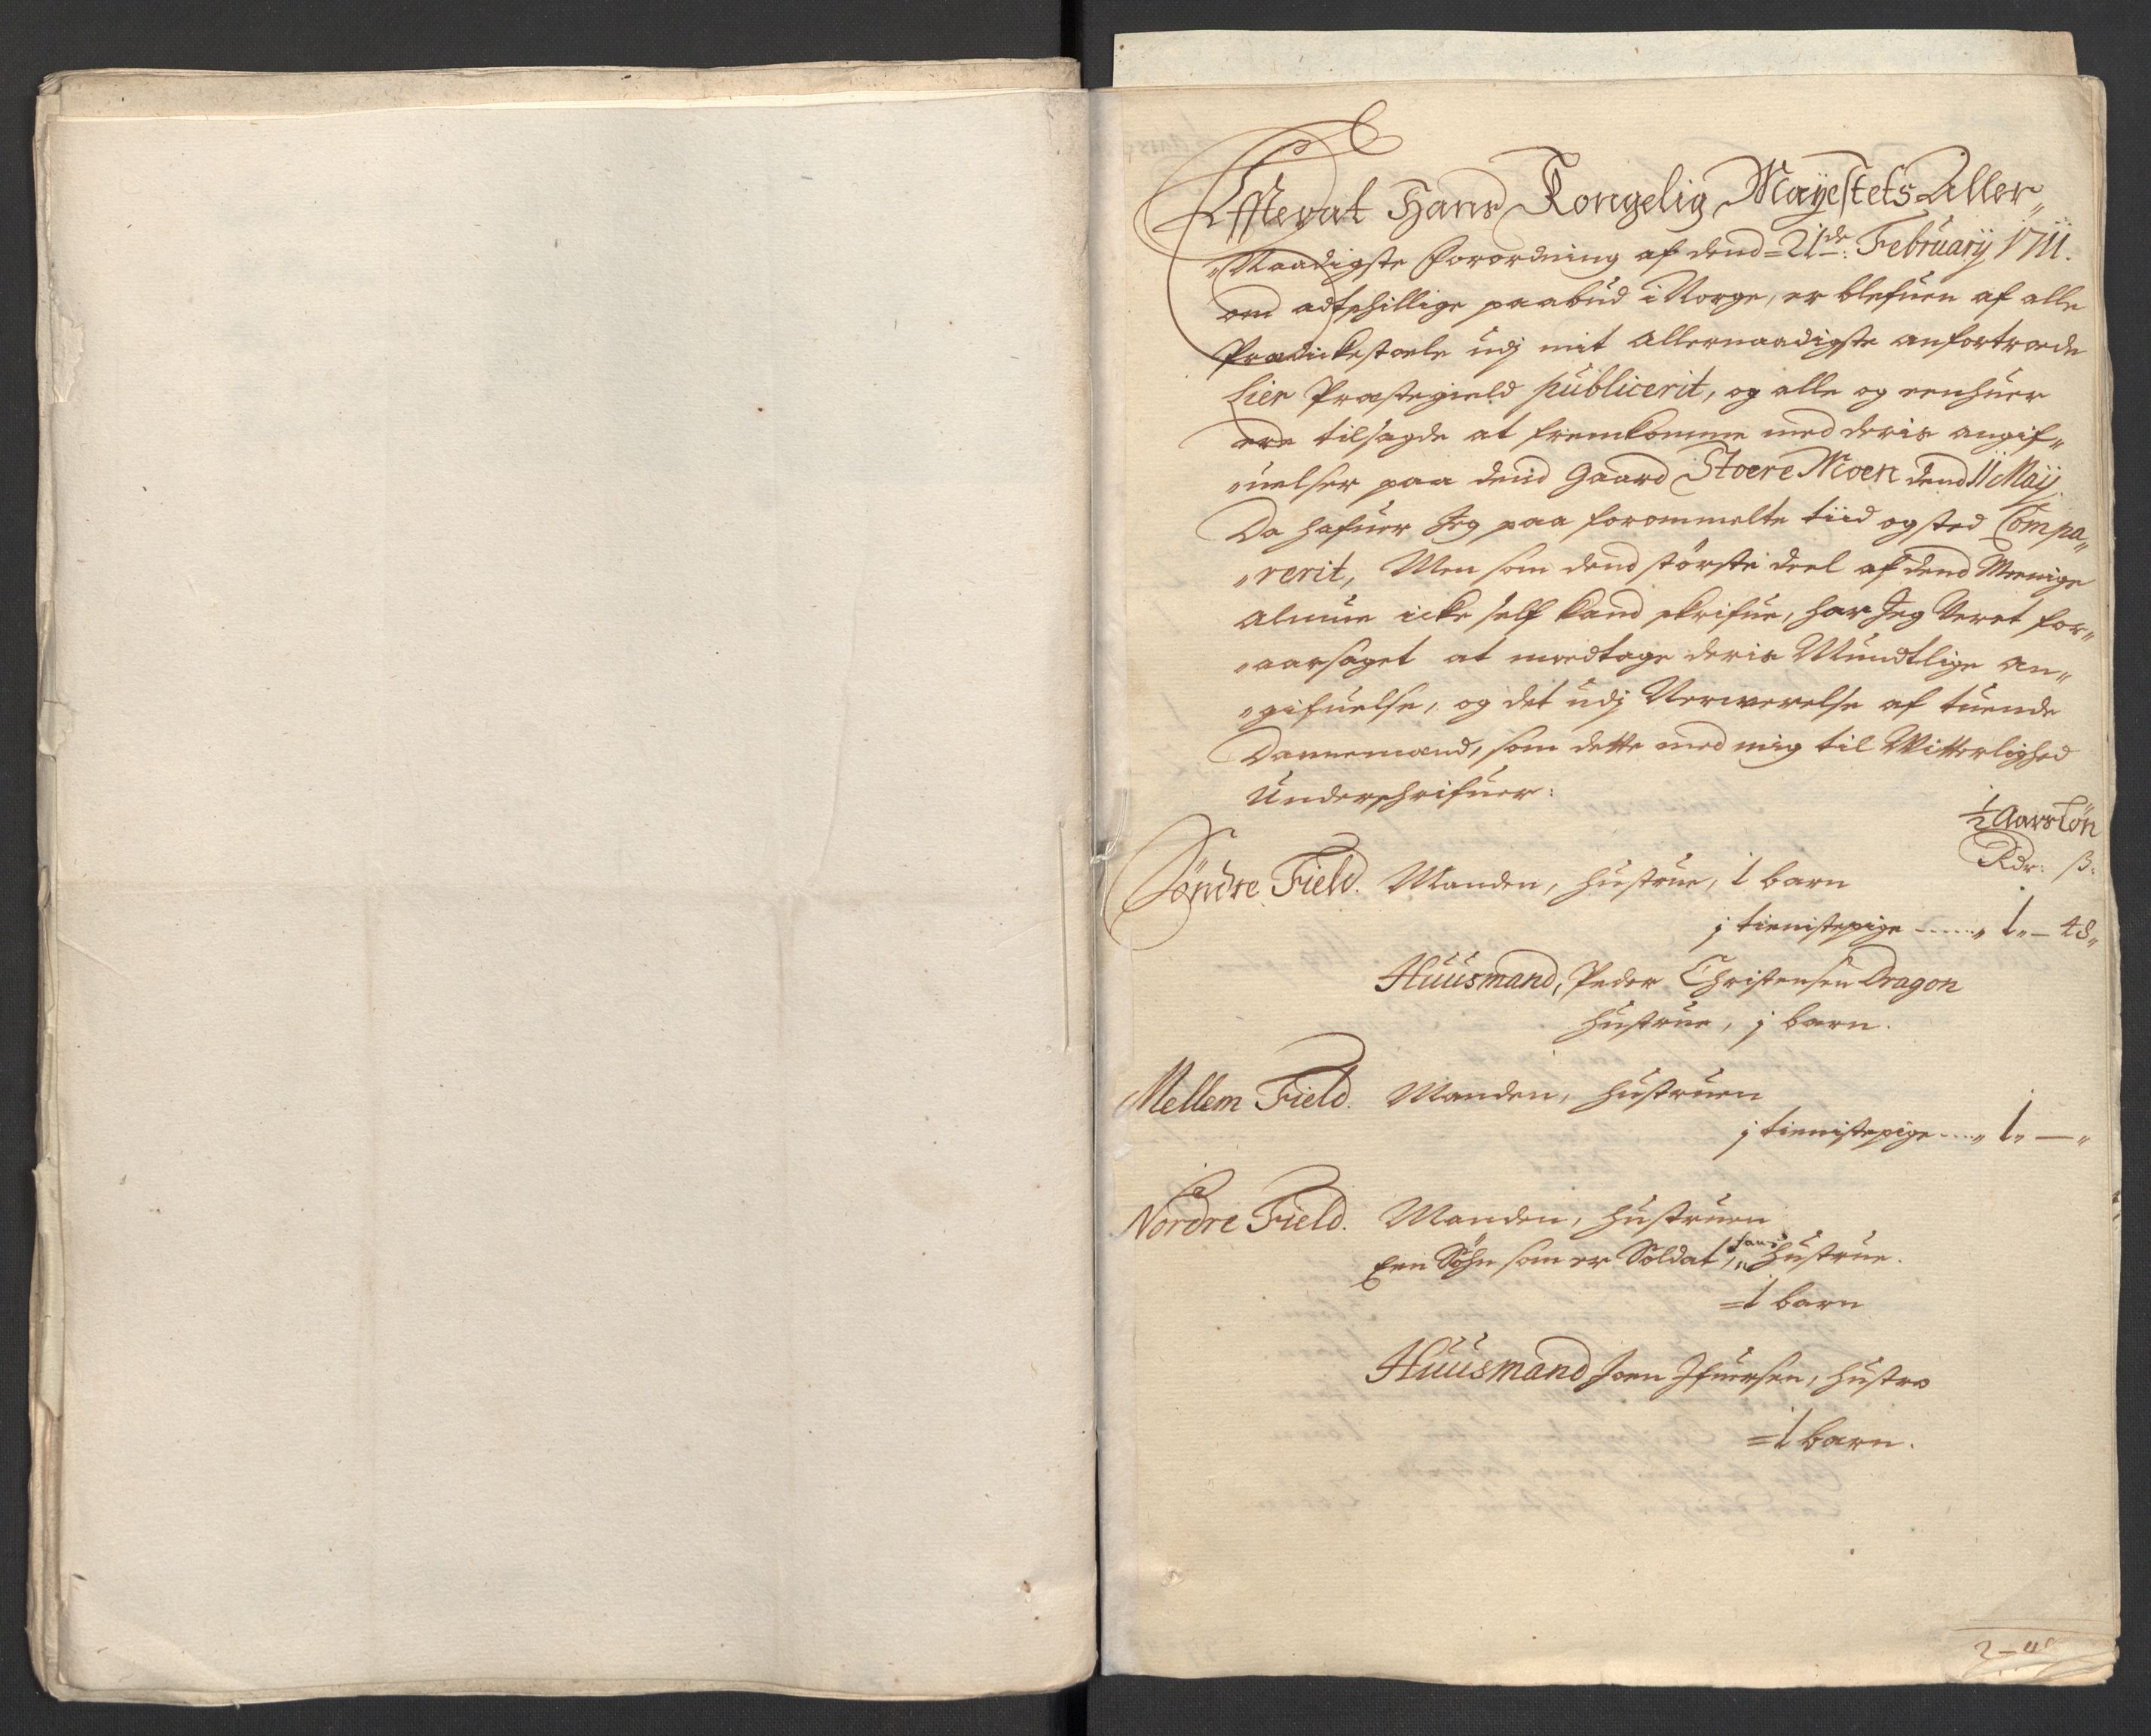 Effterat Hans Kongelig Mayestets Aller„
„Naadigste forordning af dend 21de: February 1711.
om adtschillige paabud i Norge, er blefuen af alle
Prædickestoele udj mit Allernaadigste anfortroede
Lier Præstegield publicerit, og alle og eenhuer
ere tilsagde at fremkomme med deris angif„
„uelser paa dend Gaard Stoere Moen dend 11 May
Da hafuer Jeg paa forommelte tiid og sted Compa„
„rerit, Men som dend störste deel af dend Menige
almue icke self kand skrifue, har Jeg veret for„
„aarsaget at modtage deris Mundtlige an„
„gifuelse, og det udj Nerverelse af tuende
Dannemænd, som dette med mig til Witterlighed
Underschrifuer:
½ Aars Lön
Rdr: ß:
Söndre Field. Manden, hustrue, 1 barn
j tienistepige ...... „ 1 „ – 48 „
Huusmand, Peder Christensen Dragon
hustrue, j barn.
Mellem Field. Manden, hustruen
j tienistepige .... „ 1 „ — „
Nordre Field. Manden, hustruen
Een Söhn som er Soldat, hans hustrue.
1 barn
Huusmand Joen Ifuersen, hustro
1 barn.
2 – 48